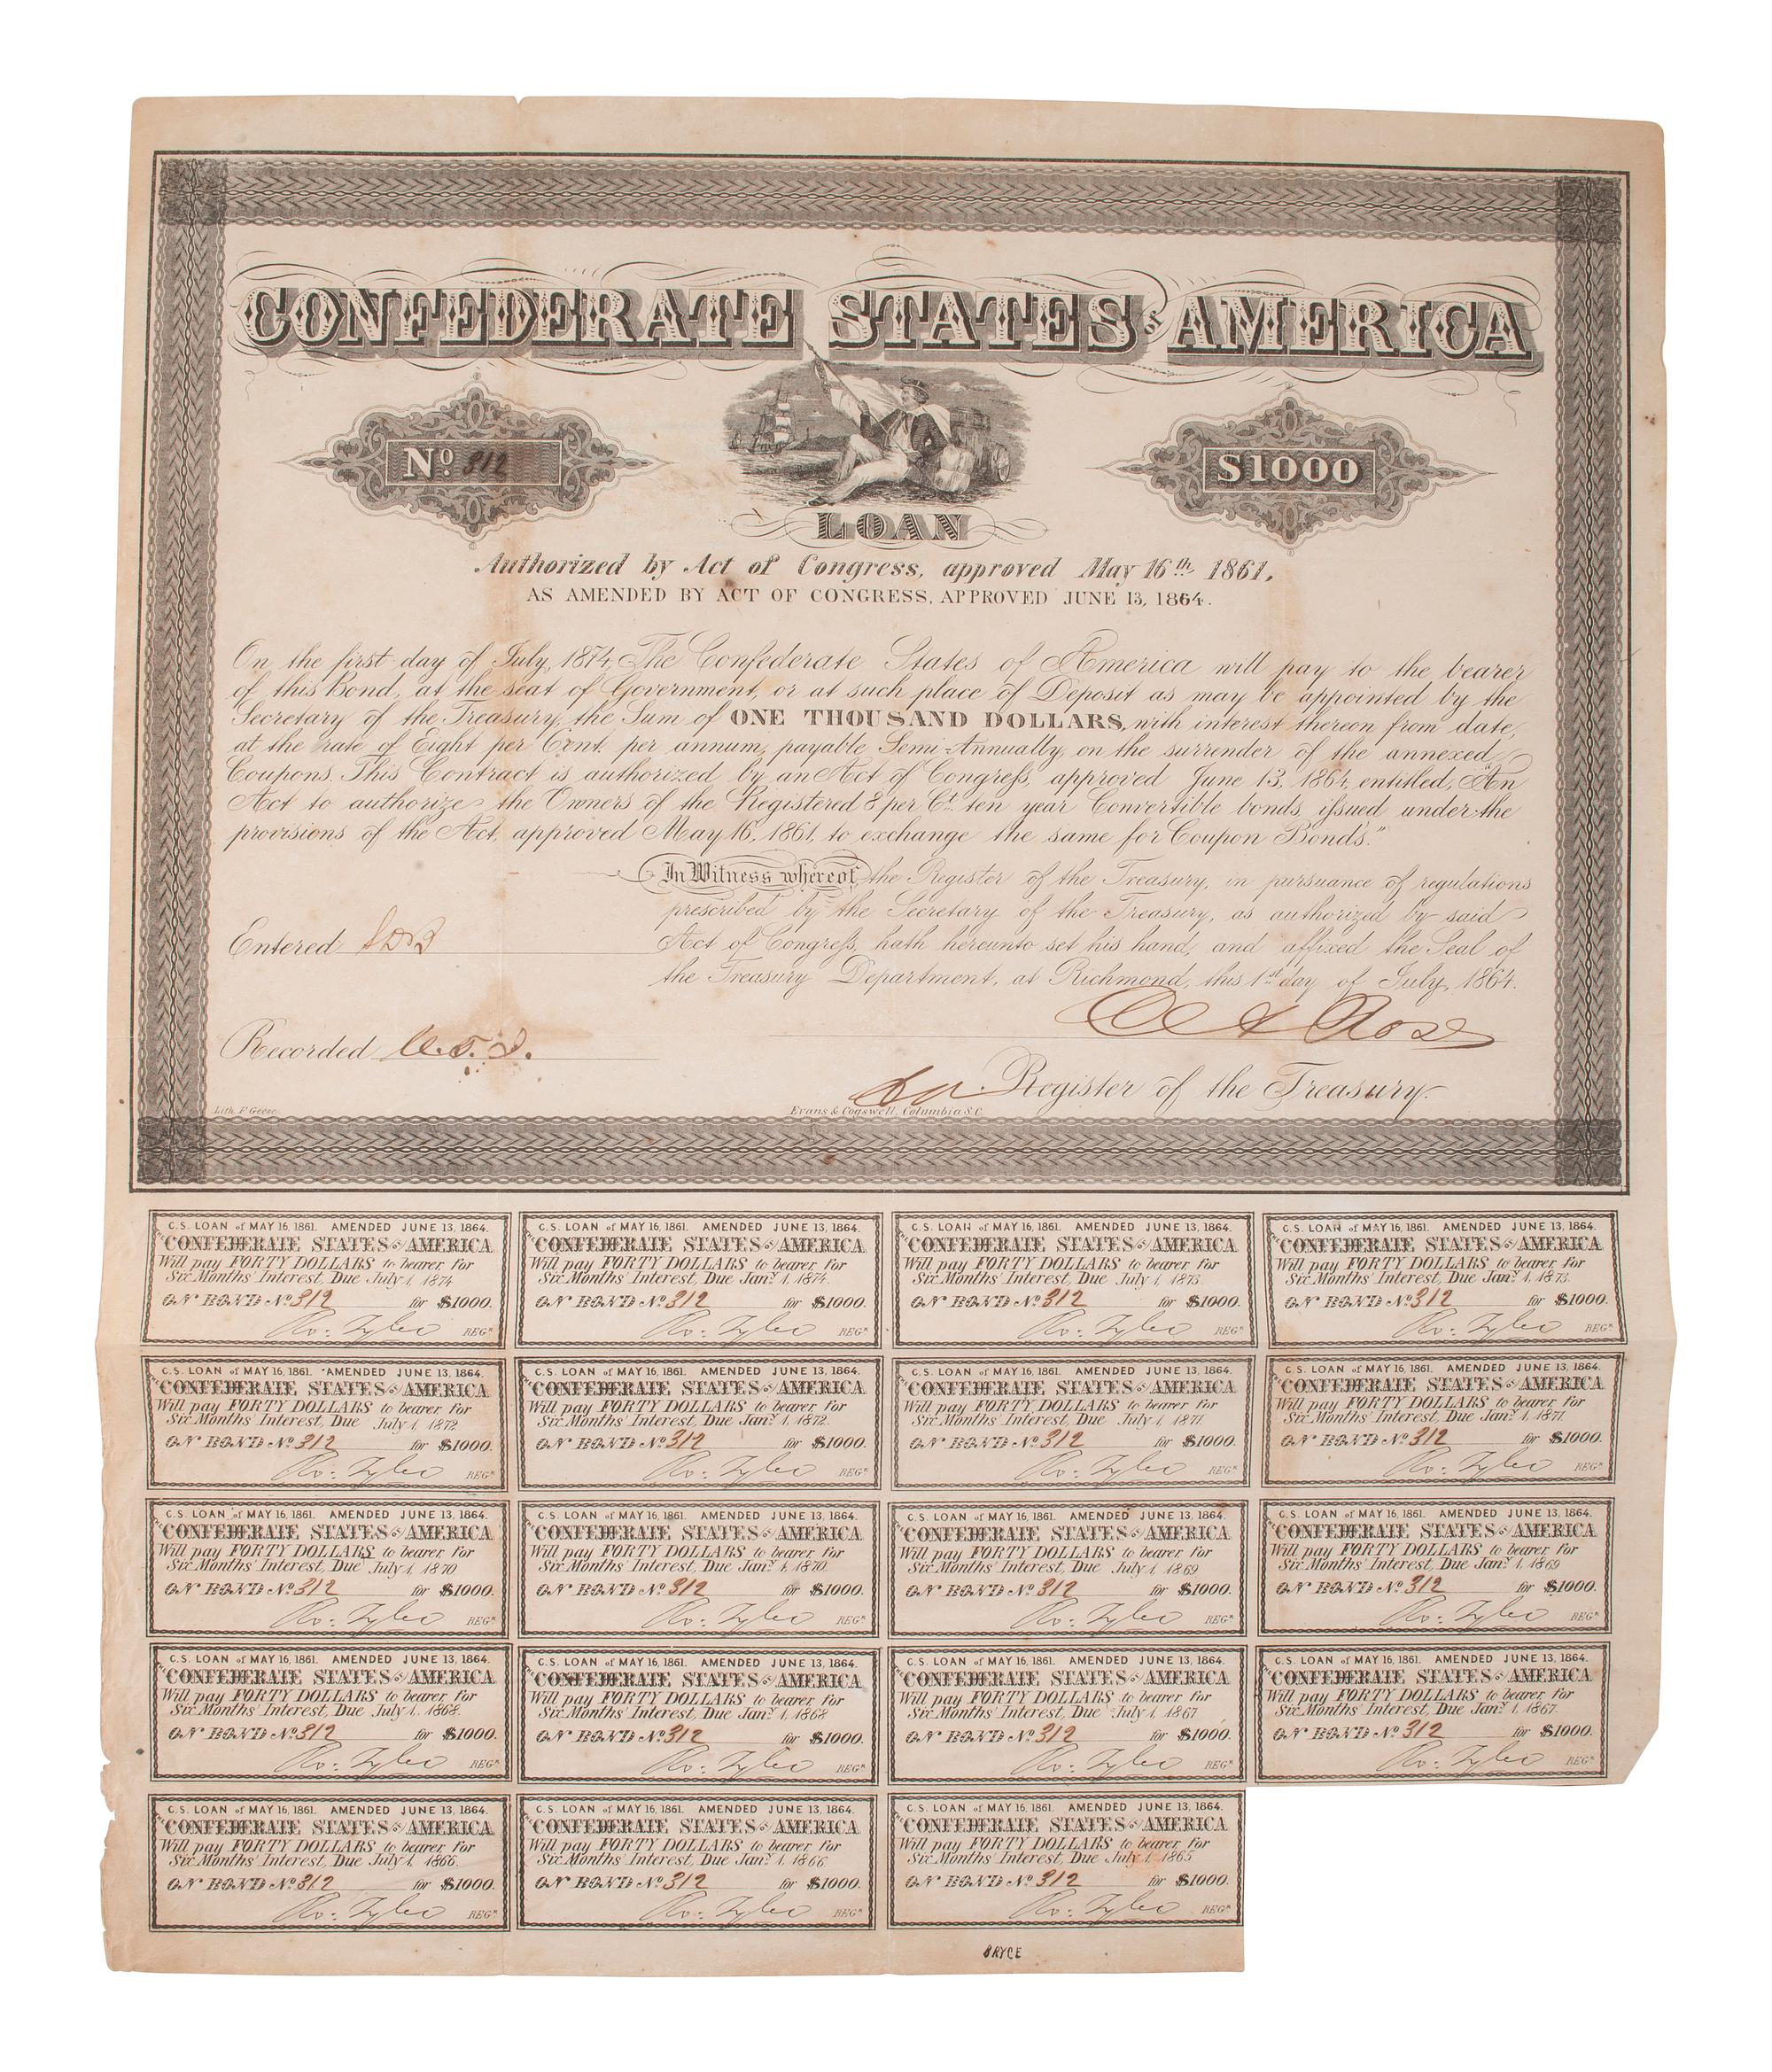 CONFEDERATE STATES OF AMERICA
No. 312
$1000
LOAN
Authorized by Act of Congress, approved May 16th 1861,
AS AMENDED BY ACT OF CONGRESS, APPROVED JUNE 13, 1864.
On the first day of July, 1874, The Confederate States of America will pay to the bearer
of this Bond, at the seat of Government, or at such place of Deposit as may be appointed by the
Secretary of the Treasury, the Sum of ONE THOUSAND DOLLARS, with interest thereon from date,
at the rate of Eight per Cent. per annum, payable Semi-Annually, on the surrender of the annexed
Coupons. This Contract is authorized by an Act of Congress, approved June 13, 1864, entitled, "An
Act to authorize the Owners of the Registered 8 per Ct. ten year Convertible bonds, issued under the
provisions of the Act, approved May 16, 1861, to exchange the same for Coupon Bonds."
In Witness whereof, the Register of the Treasury, in pursuance of regulations
prescribed by the Secretary of the Treasury, as authorized by said
Act of Congress, hath hereunto set his hand, and affixed the Seal of
the Treasury Department, at Richmond, this 1st day of July, 1864.
Entered
Recorded
Rose
Register of the Treasury.
Lith. F. Geese
Evans & Cogswell, Columbia S.C.
C.S. LOAN of MAY 16, 1861. AMENDED JUNE 13, 1864.
THE CONFEDERATE STATES OF AMERICA
Will pay FORTY DOLLARS to bearer, for
Six Months' Interest, Due July 1, 1874
ON BOND No. 312 for $1000.
Ro: Tyler REGR
C.S. LOAN of MAY 16, 1861. AMENDED JUNE 13, 1864.
THE CONFEDERATE STATES OF AMERICA
Will pay FORTY DOLLARS to bearer, for
Six Months' Interest, Due Jany. 1, 1874.
ON BOND No. 312 for $1000.
Ro: Tyler REGR
C.S. LOAN of MAY 16, 1861. AMENDED JUNE 13, 1864.
THE CONFEDERATE STATES OF AMERICA
Will pay FORTY DOLLARS to bearer, for
Six Months' Interest, Due July 1, 1873.
ON BOND No. 312 for $1000.
Ro: Tyler REGR
C.S. LOAN of MAY 16, 1861. AMENDED JUNE 13, 1864.
THE CONFEDERATE STATES OF AMERICA
Will pay FORTY DOLLARS to bearer, for
Six Months' Interest, Due Jany. 1, 1873.
ON BOND No. 312 for $1000.
Ro: Tyler REGR
C.S. LOAN of MAY 16, 1861. AMENDED JUNE 13, 1864.
THE CONFEDERATE STATES OF AMERICA
Will pay FORTY DOLLARS to bearer, for
Six Months' Interest, Due July 1, 1872.
ON BOND No. 312 for $1000.
Ro: Tyler REGR
C.S. LOAN of MAY 16, 1861. AMENDED JUNE 13, 1864.
THE CONFEDERATE STATES OF AMERICA
Will pay FORTY DOLLARS to bearer, for
Six Months' Interest, Due Jany. 1, 1872.
ON BOND No. 312 for $1000.
Ro: Tyler REGR
C.S. LOAN of MAY 16, 1861. AMENDED JUNE 13, 1864.
THE CONFEDERATE STATES OF AMERICA
Will pay FORTY DOLLARS to bearer, for
Six Months' Interest, Due July 1, 1871.
ON BOND No. 312 for $1000.
Ro: Tyler REGR
C.S. LOAN of MAY 16, 1861. AMENDED JUNE 13, 1864.
THE CONFEDERATE STATES OF AMERICA
Will pay FORTY DOLLARS to bearer, for
Six Months' Interest, Due Jany. 1, 1871.
ON BOND No. 312 for $1000.
Ro: Tyler REGR
C.S. LOAN of MAY 16, 1861. AMENDED JUNE 13, 1864.
THE CONFEDERATE STATES OF AMERICA
Will pay FORTY DOLLARS to bearer, for
Six Months' Interest, Due July 1, 1870
ON BOND No. 312 for $1000.
Ro: Tyler REGR
C.S. LOAN of MAY 16, 1861. AMENDED JUNE 13, 1864.
THE CONFEDERATE STATES OF AMERICA
Will pay FORTY DOLLARS to bearer, for
Six Months' Interest, Due Jany. 1, 1870.
ON BOND No. 312 for $1000.
Ro: Tyler REGR
C.S. LOAN of MAY 16, 1861. AMENDED JUNE 13, 1864.
THE CONFEDERATE STATES OF AMERICA
Will pay FORTY DOLLARS to bearer, for
Six Months' Interest, Due July 1, 1869
ON BOND No. 312 for $1000.
Ro: Tyler REGR
C.S. LOAN of MAY 16, 1861. AMENDED JUNE 13, 1864.
THE CONFEDERATE STATES OF AMERICA
Will pay FORTY DOLLARS to bearer, for
Six Months' Interest, Due Jany. 1, 1869
ON BOND No. 312 for $1000.
Ro: Tyler REGR
C.S. LOAN of MAY 16, 1861. AMENDED JUNE 13, 1864.
THE CONFEDERATE STATES OF AMERICA
Will pay FORTY DOLLARS to bearer, for
Six Months' Interest, Due July 1, 1868.
ON BOND No. 312 for $1000.
Ro: Tyler REGR
C.S. LOAN of MAY 16, 1861. AMENDED JUNE 13, 1864.
THE CONFEDERATE STATES OF AMERICA
Will pay FORTY DOLLARS to bearer, for
Six Months' Interest, Due Jany. 1, 1868
ON BOND No. 312 for $1000.
Ro: Tyler REGR
C.S. LOAN of MAY 16, 1861. AMENDED JUNE 13, 1864.
THE CONFEDERATE STATES OF AMERICA
Will pay FORTY DOLLARS to bearer, for
Six Months' Interest, Due July 1, 1867
ON BOND No. 312 for $1000.
Ro: Tyler REGR
C.S. LOAN of MAY 16, 1861. AMENDED JUNE 13, 1864.
THE CONFEDERATE STATES OF AMERICA
Will pay FORTY DOLLARS to bearer, for
Six Months' Interest, Due Jany. 1, 1867.
ON BOND No. 312 for $1000.
Ro: Tyler REGR
C.S. LOAN of MAY 16, 1861. AMENDED JUNE 13, 1864.
THE CONFEDERATE STATES OF AMERICA
Will pay FORTY DOLLARS to bearer, for
Six Months' Interest, Due July 1, 1866.
ON BOND No. 312 for $1000.
Ro: Tyler REGR
C.S. LOAN of MAY 16, 1861. AMENDED JUNE 13, 1864.
THE CONFEDERATE STATES OF AMERICA
Will pay FORTY DOLLARS to bearer, for
Six Months' Interest, Due Jany. 1, 1866.
ON BOND No. 312 for $1000.
Ro: Tyler REGR
C.S. LOAN of MAY 16, 1861. AMENDED JUNE 13, 1864.
THE CONFEDERATE STATES OF AMERICA
Will pay FORTY DOLLARS to bearer, for
Six Months' Interest, Due July 1, 1865
ON BOND No. 312 for $1000.
Ro: Tyler REGR
BRYCE